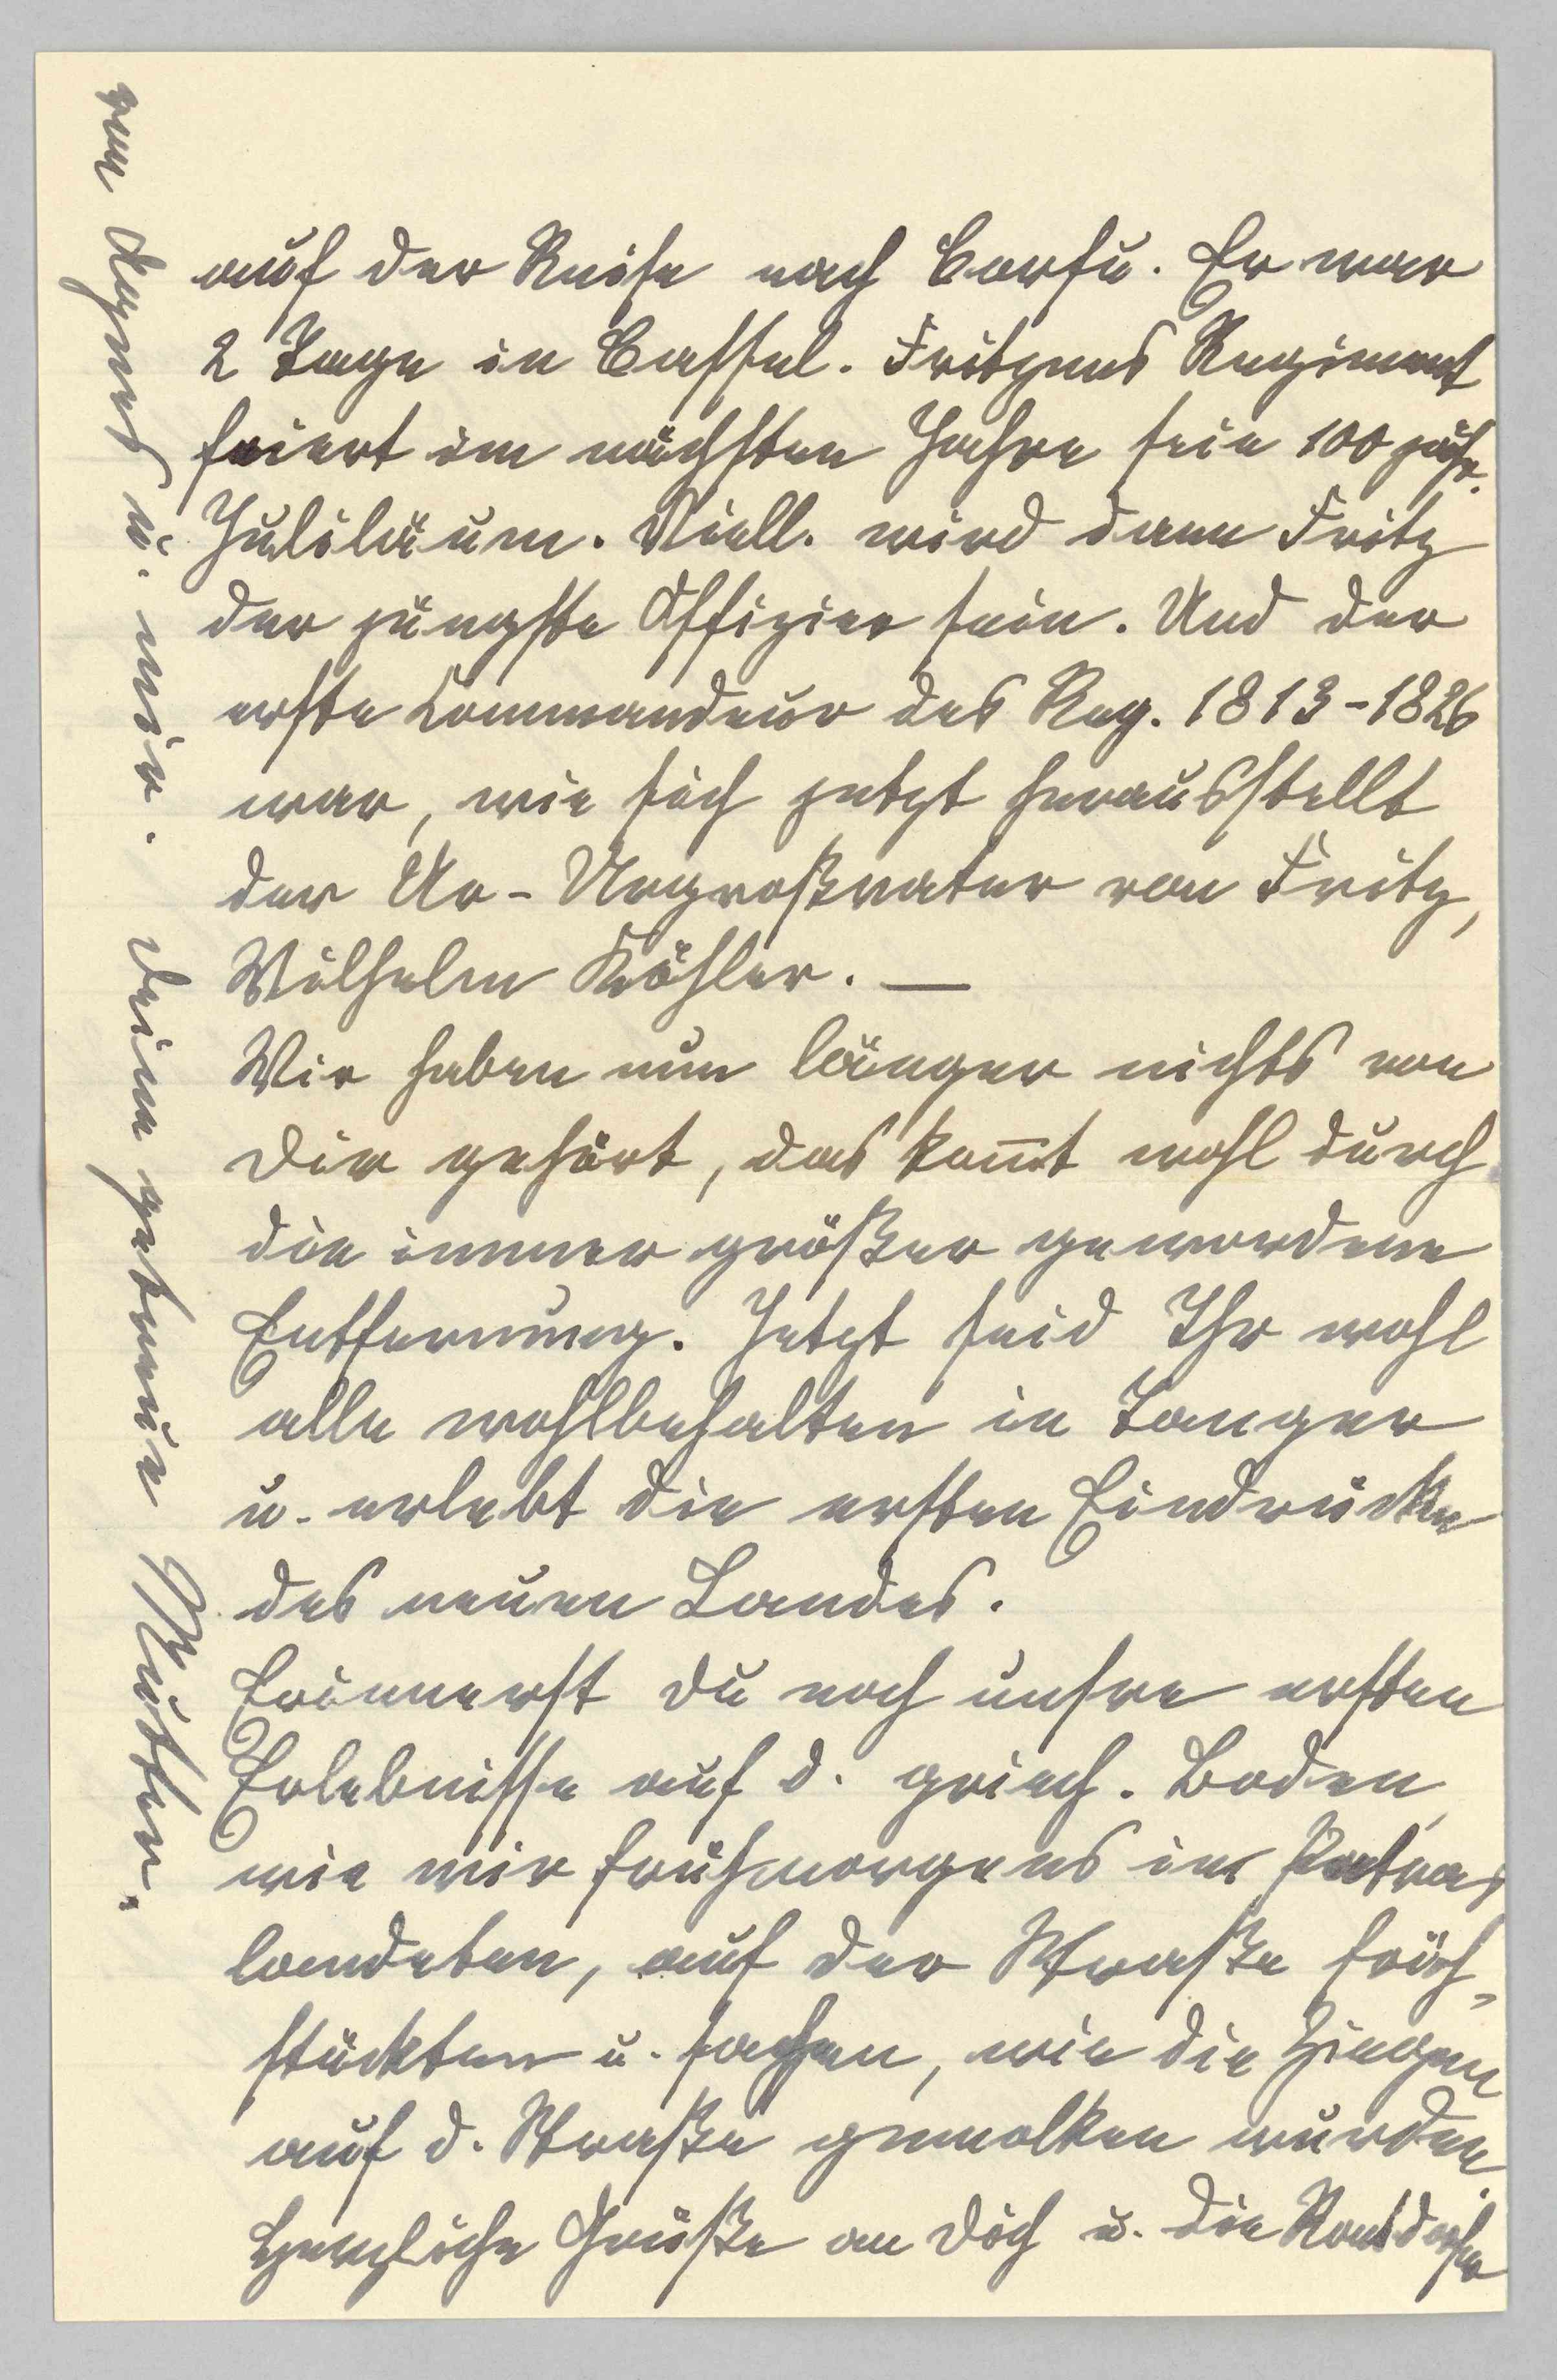 auf der Reise nach Corfu. Er war
2 Tage in Cassel. Fritzens Regiment
feiert im nächsten Jahre sein 100 jähr.
Jubiläum. Viell. wird dann Fritz
der jüngste Offizier sein. Und der
erste Commandeur des Reg. 1813-1826
war, wie sich jetzt herausstellt
der Ur-Urgroßvater von Fritz,
Wilhelm Köhler. —
Wir haben nun länger nichts von
Dir gehört, das kom̅t wohl durch
die immer größer gewordene
Entfernung. Jetzt seid Ihr wohl
alle wohlbehalten in Tanger
u. erlebt die ersten Eindrücke
des neuen Landes.
Erinnerst Du noch unsre ersten
Erlebnisse auf d. griech. Boden,
wie wir frühmorgens in Patras
landeten, auf der Straße früh-
stückten u. sahen, wie die Ziegen
auf d. Straße gemolken wurden.
Herzliche Grüße an Dich u. die
von Agnes u. mir. Deine getreue Mutter.